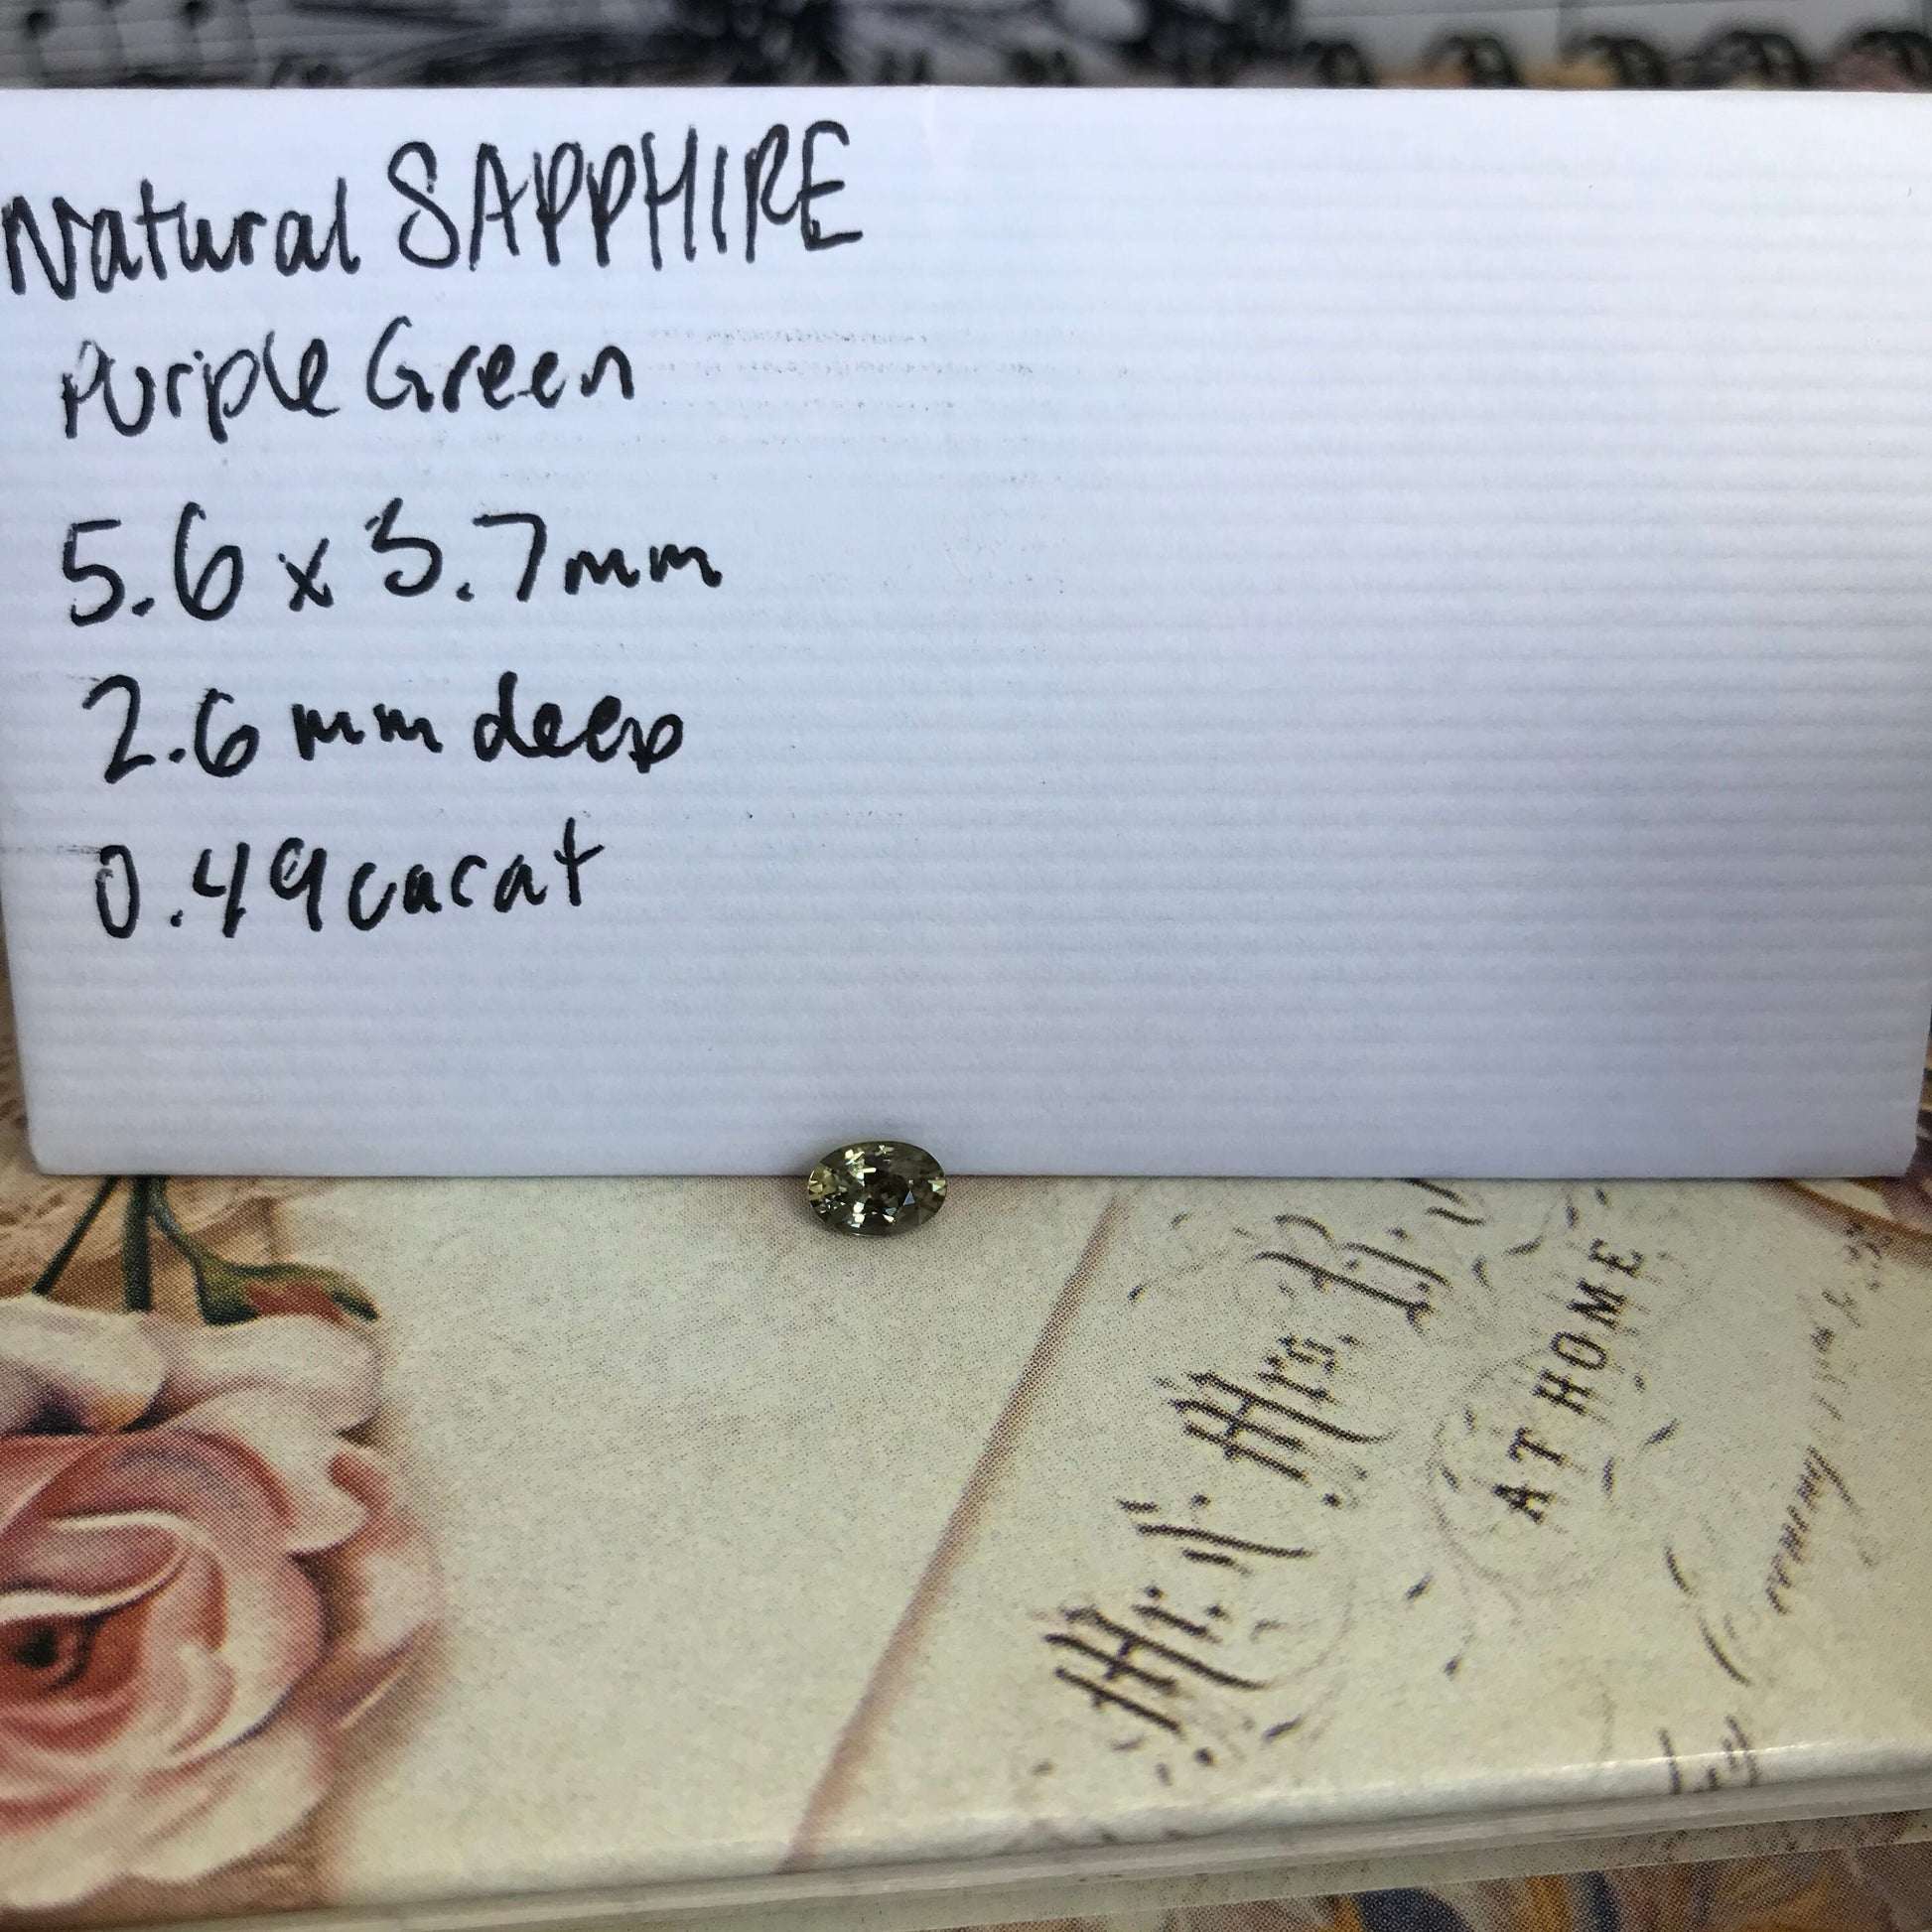 Natural SAPPHIRE
Purple Green
5.6 x 3.7mm
2.6 mm deep
0.49 carat
Mr. Mrs.
AT HOME